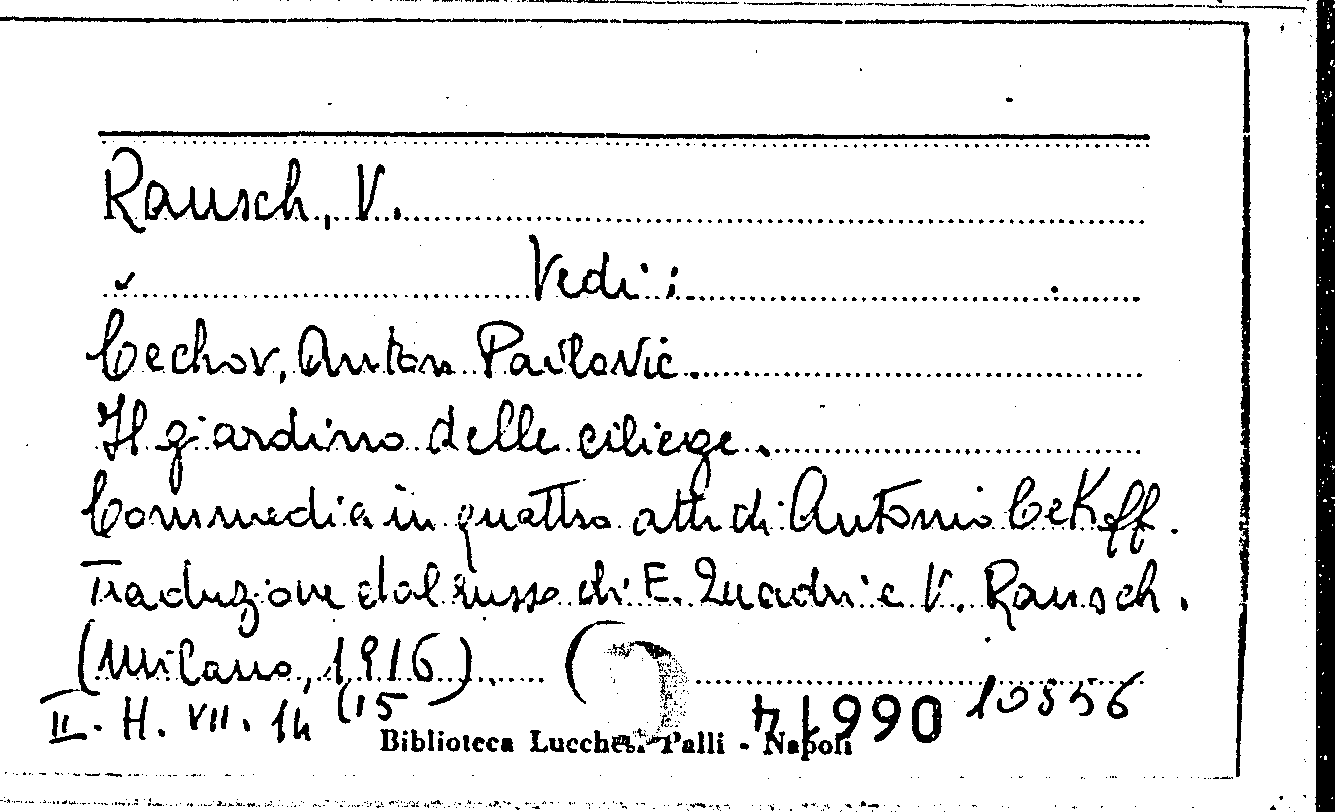 Rausch, V.
Vedi:
Cechov, Anton Pavlovic.
Il giardino delle ciliege.
Commedia in quattro atti di Antonio Cekoff.
Traduzione dal russo di E. Quadri e V. Rausch.
(Milano, 1916).
II. H. VII. 14 (15
066174
Biblioteca Lucchesi Palli - Napoli